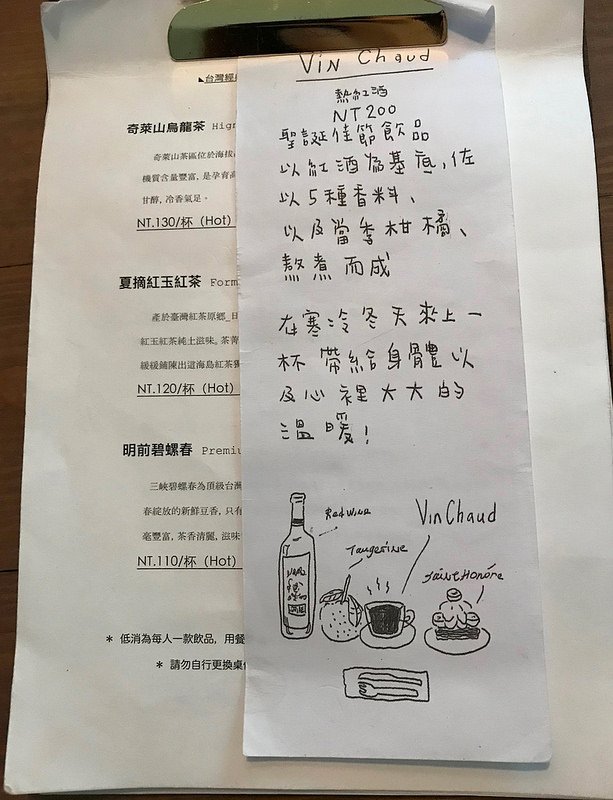 Vin Chaud
熱紅酒
NT 200
聖誕佳節飲品
以紅酒為基底,佐
以5種香料、
以及當季柑橘、
熬煮而成
在寒冷冬天來上一
杯 帶給身體以
及心裡大大的
溫暖!
Red Wine
Tangerine
Vin Chaud
Saint Honóre
台灣經
奇萊山烏龍茶 High
奇萊山茶區位於海拔
機質含量豐富,是孕育
甘醇,冷香氣足。
NT.130/杯 (Hot)
夏摘紅玉紅茶 Form
產於臺灣紅茶原鄉_日
紅玉紅茶純土滋味。茶菁
緩緩鋪陳出這海島紅茶
NT.120/杯 (Hot)
明前碧螺春 Premiu
三峽碧螺春為頂級台灣
春綻放的新鮮豆香,只有
毫豐富,茶香清麗,滋味
NT.110/杯 (Hot)
* 低消為每人一款飲品,用餐
* 請勿自行更換桌